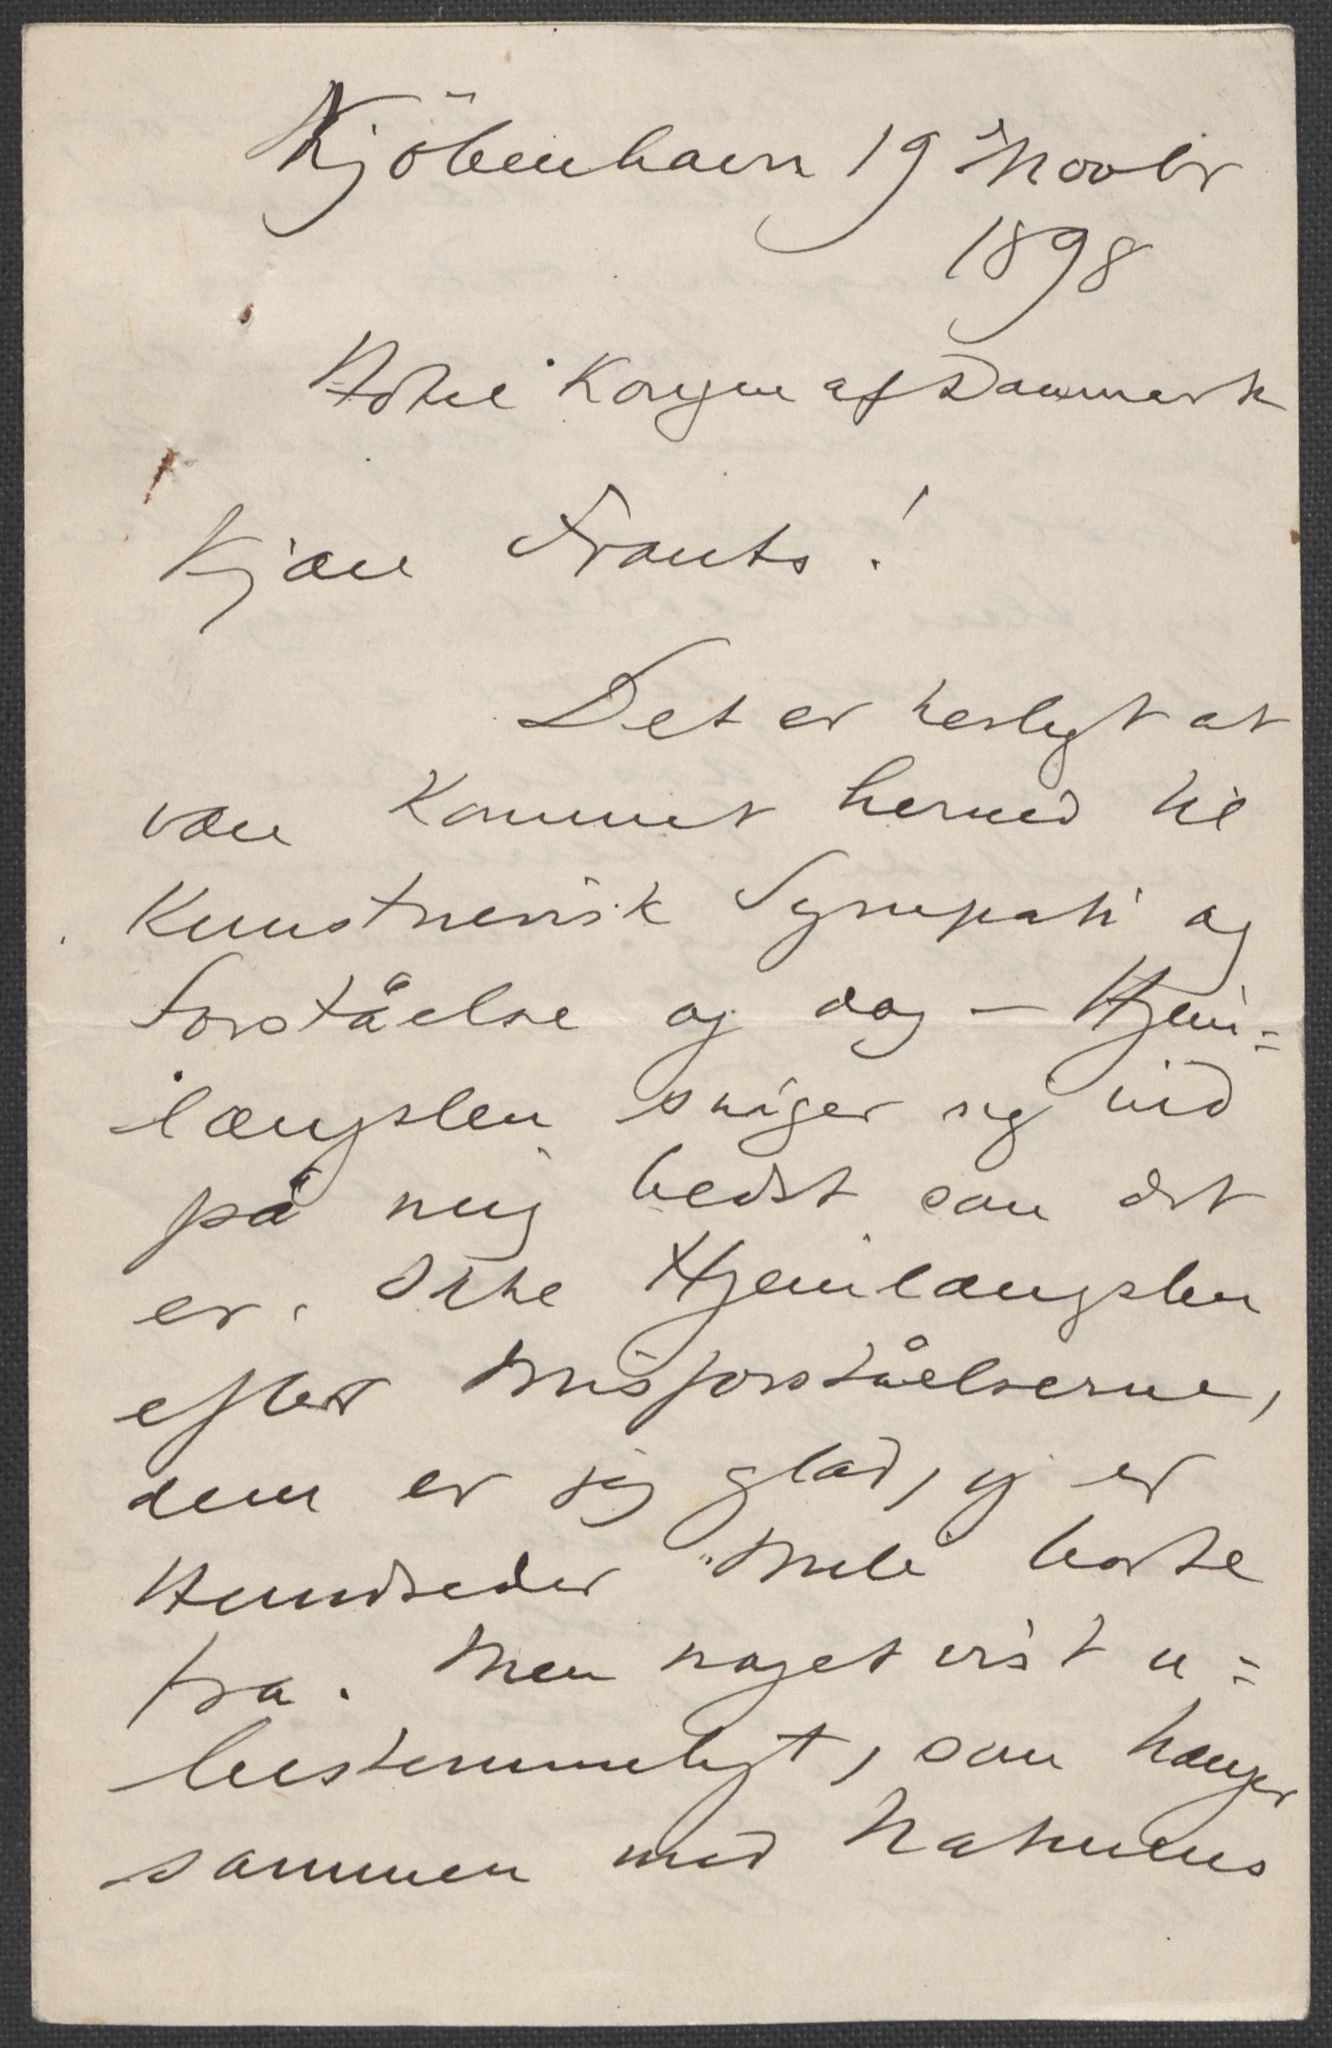 Kjöbenhavn 19 Novbr
1898
Hotel Kongen af Danmark
Kjære Frants!
Det er herligt at
være kommet herned til
kunstnerisk Sympati og
Forståelse og dog – Hjem=
længslen sniger sig ind
på mig bedst som det
er. Ikke Hjemlængslen
efter Misforståelserne,
dem er jeg glad, jeg er
Hundreder Mile borte
fra. Men noget vist u=
bestemmeligt, som hænger
sammen med Naturens